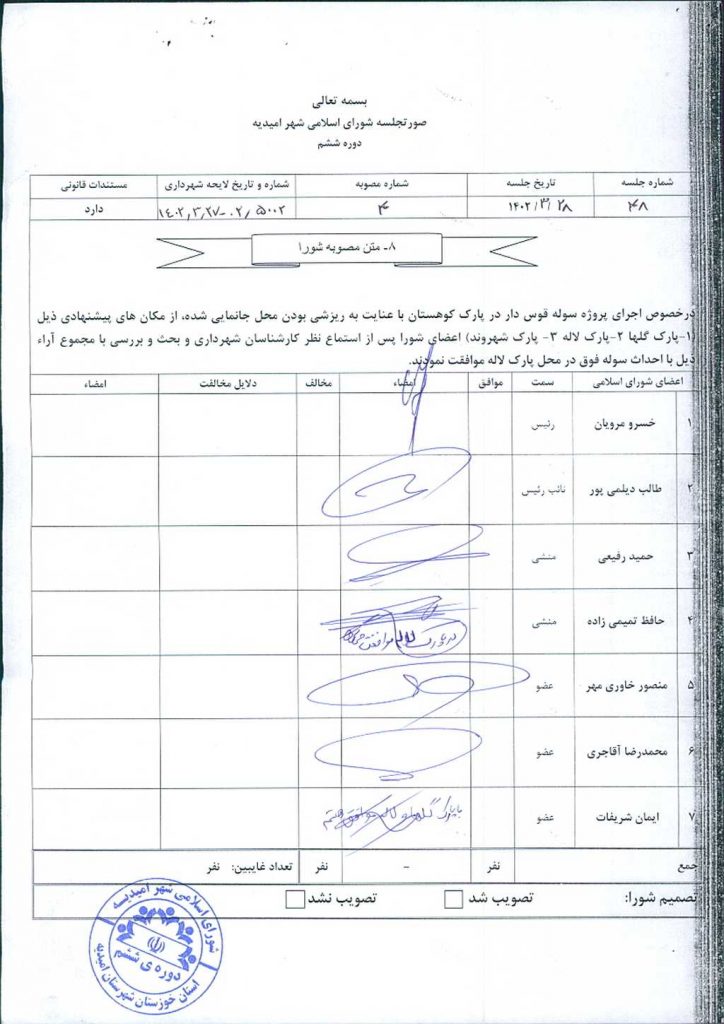 بسمه تعالی
صورتجلسه شورای اسلامی شهر امیدیه
دوره ششم
شماره جلسه تاریخ جلسه شماره مصوبه شماره و تاریخ لایحه شهرداری مستندات قانونی
۴۸ ۱۴۰۲/۳/۲۸ ۴ ۱۴۰۲,۳,۲۷-۰۲/۵۰۰۲ دارد
۸- متن مصوبه شورا
درخصوص اجرای پروژه سوله قوس دار در پارک کوهستان با عنایت به ریزشی بودن محل جانمایی شده، از مکان های پیشنهادی ذیل
(۱-پارک گلها ۲-پارک لاله ۳- پارک شهروند) اعضای شورا پس از استماع نظر کارشناسان شهرداری و بحث و بررسی با مجموع آراء
ذیل با احداث سوله فوق در محل پارک لاله موافقت نمودند.
اعضای شورای اسلامی سمت موافق امضاء مخالف دلایل مخالفت امضاء
۱ خسرو مرویان رئیس
۲ طالب دیلمی پور نائب رئیس
۳ حمید رفیعی منشی
۴ حافظ تمیمی زاده منشی
لاله موافقت
۵ منصور خاوری مهر عضو
۶ محمدرضا آقاجری عضو
۷ ایمان شریفات عضو
با پارک گلها و لاله موافق هستم
جمع نفر - نفر تعداد غایبین: نفر
تصمیم شورا: تصویب شد تصویب نشد
شورای اسلامی شهر امیدیه
دوره ی ششم
استان خوزستان شهرستان امیدیه